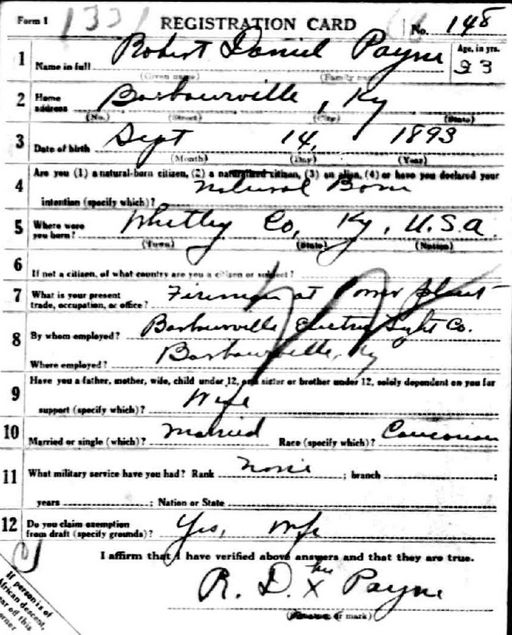 Form 1 133 REGISTRATION CARD No. 148
1 Name in full Robert Daniel Payne Age, in yrs. 23
(Given name) (Family name)
2 Home address Barbourville, Ky
(No.) (Street) (City) (State)
3 Date of birth Sept 14, 1893
(Month) (Day) (Year)
Are you (1) a natural-born citizen, (2) a naturalized citizen, (3) an alien, (4) or have you declared your
4 intention (specify which)? Natural Born
5 Where were you born? Whitley Co, Ky, U.S.A.
(Town) (State) (Nation)
6 If not a citizen, of what country are you a citizen or subject?
7 What is your present trade, occupation, or office? Fireman at Power plant
8 By whom employed? Barbourville Electric Light Co.
Where employed? Barbourville, Ky
Have you a father, mother, wife, child under 12, or a sister or brother under 12, solely dependent on you for
9 support (specify which)? Wife
10 Married or single (which)? Married Race (specify which)? Caucasian
11 What military service have you had? Rank None ; branch ;
years ; Nation or State
12 Do you claim exemption from draft (specify grounds)? Yes, wife
I affirm that I have verified above answers and that they are true.
R. D. X Payne
(Signature or mark)
If person is of
African descent,
tear off this
corner